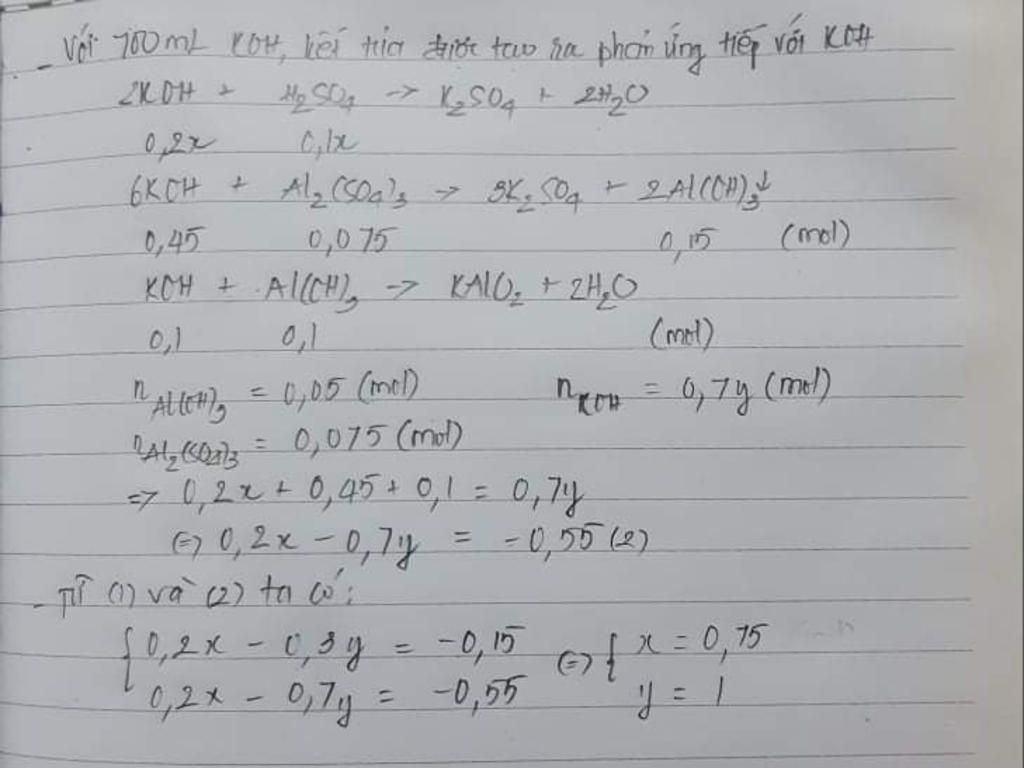 - Với 700mL KOH, kết tủa được tạo ra phản ứng tiếp với KOH
2KOH + H₂SO₄ -> K₂SO₄ + 2H₂O
0,2x 0,1x
6KOH + Al₂(SO₄)₃ -> 3K₂SO₄ + 2Al(OH)₃↓
0,45 0,075 0,15 (mol)
KOH + Al(OH)₃ -> KAlO₂ + 2H₂O
0,1 0,1 (mol)
n Al(OH)₃ = 0,05 (mol) n KOH = 0,7y (mol)
n Al₂(SO₄)₃ = 0,075 (mol)
=> 0,2x + 0,45 + 0,1 = 0,7y
(=> 0,2x - 0,7y = -0,55 (2)
- Từ (1) và (2) ta có:
{ 0,2x - 0,3y = -0,15 (=> { x = 0,75
0,2x - 0,7y = -0,55 y = 1